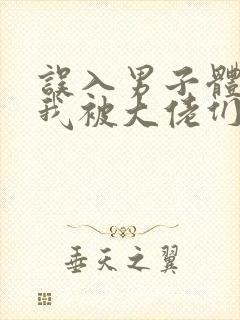 誤入男子體
我被大佬们
垂天之翼